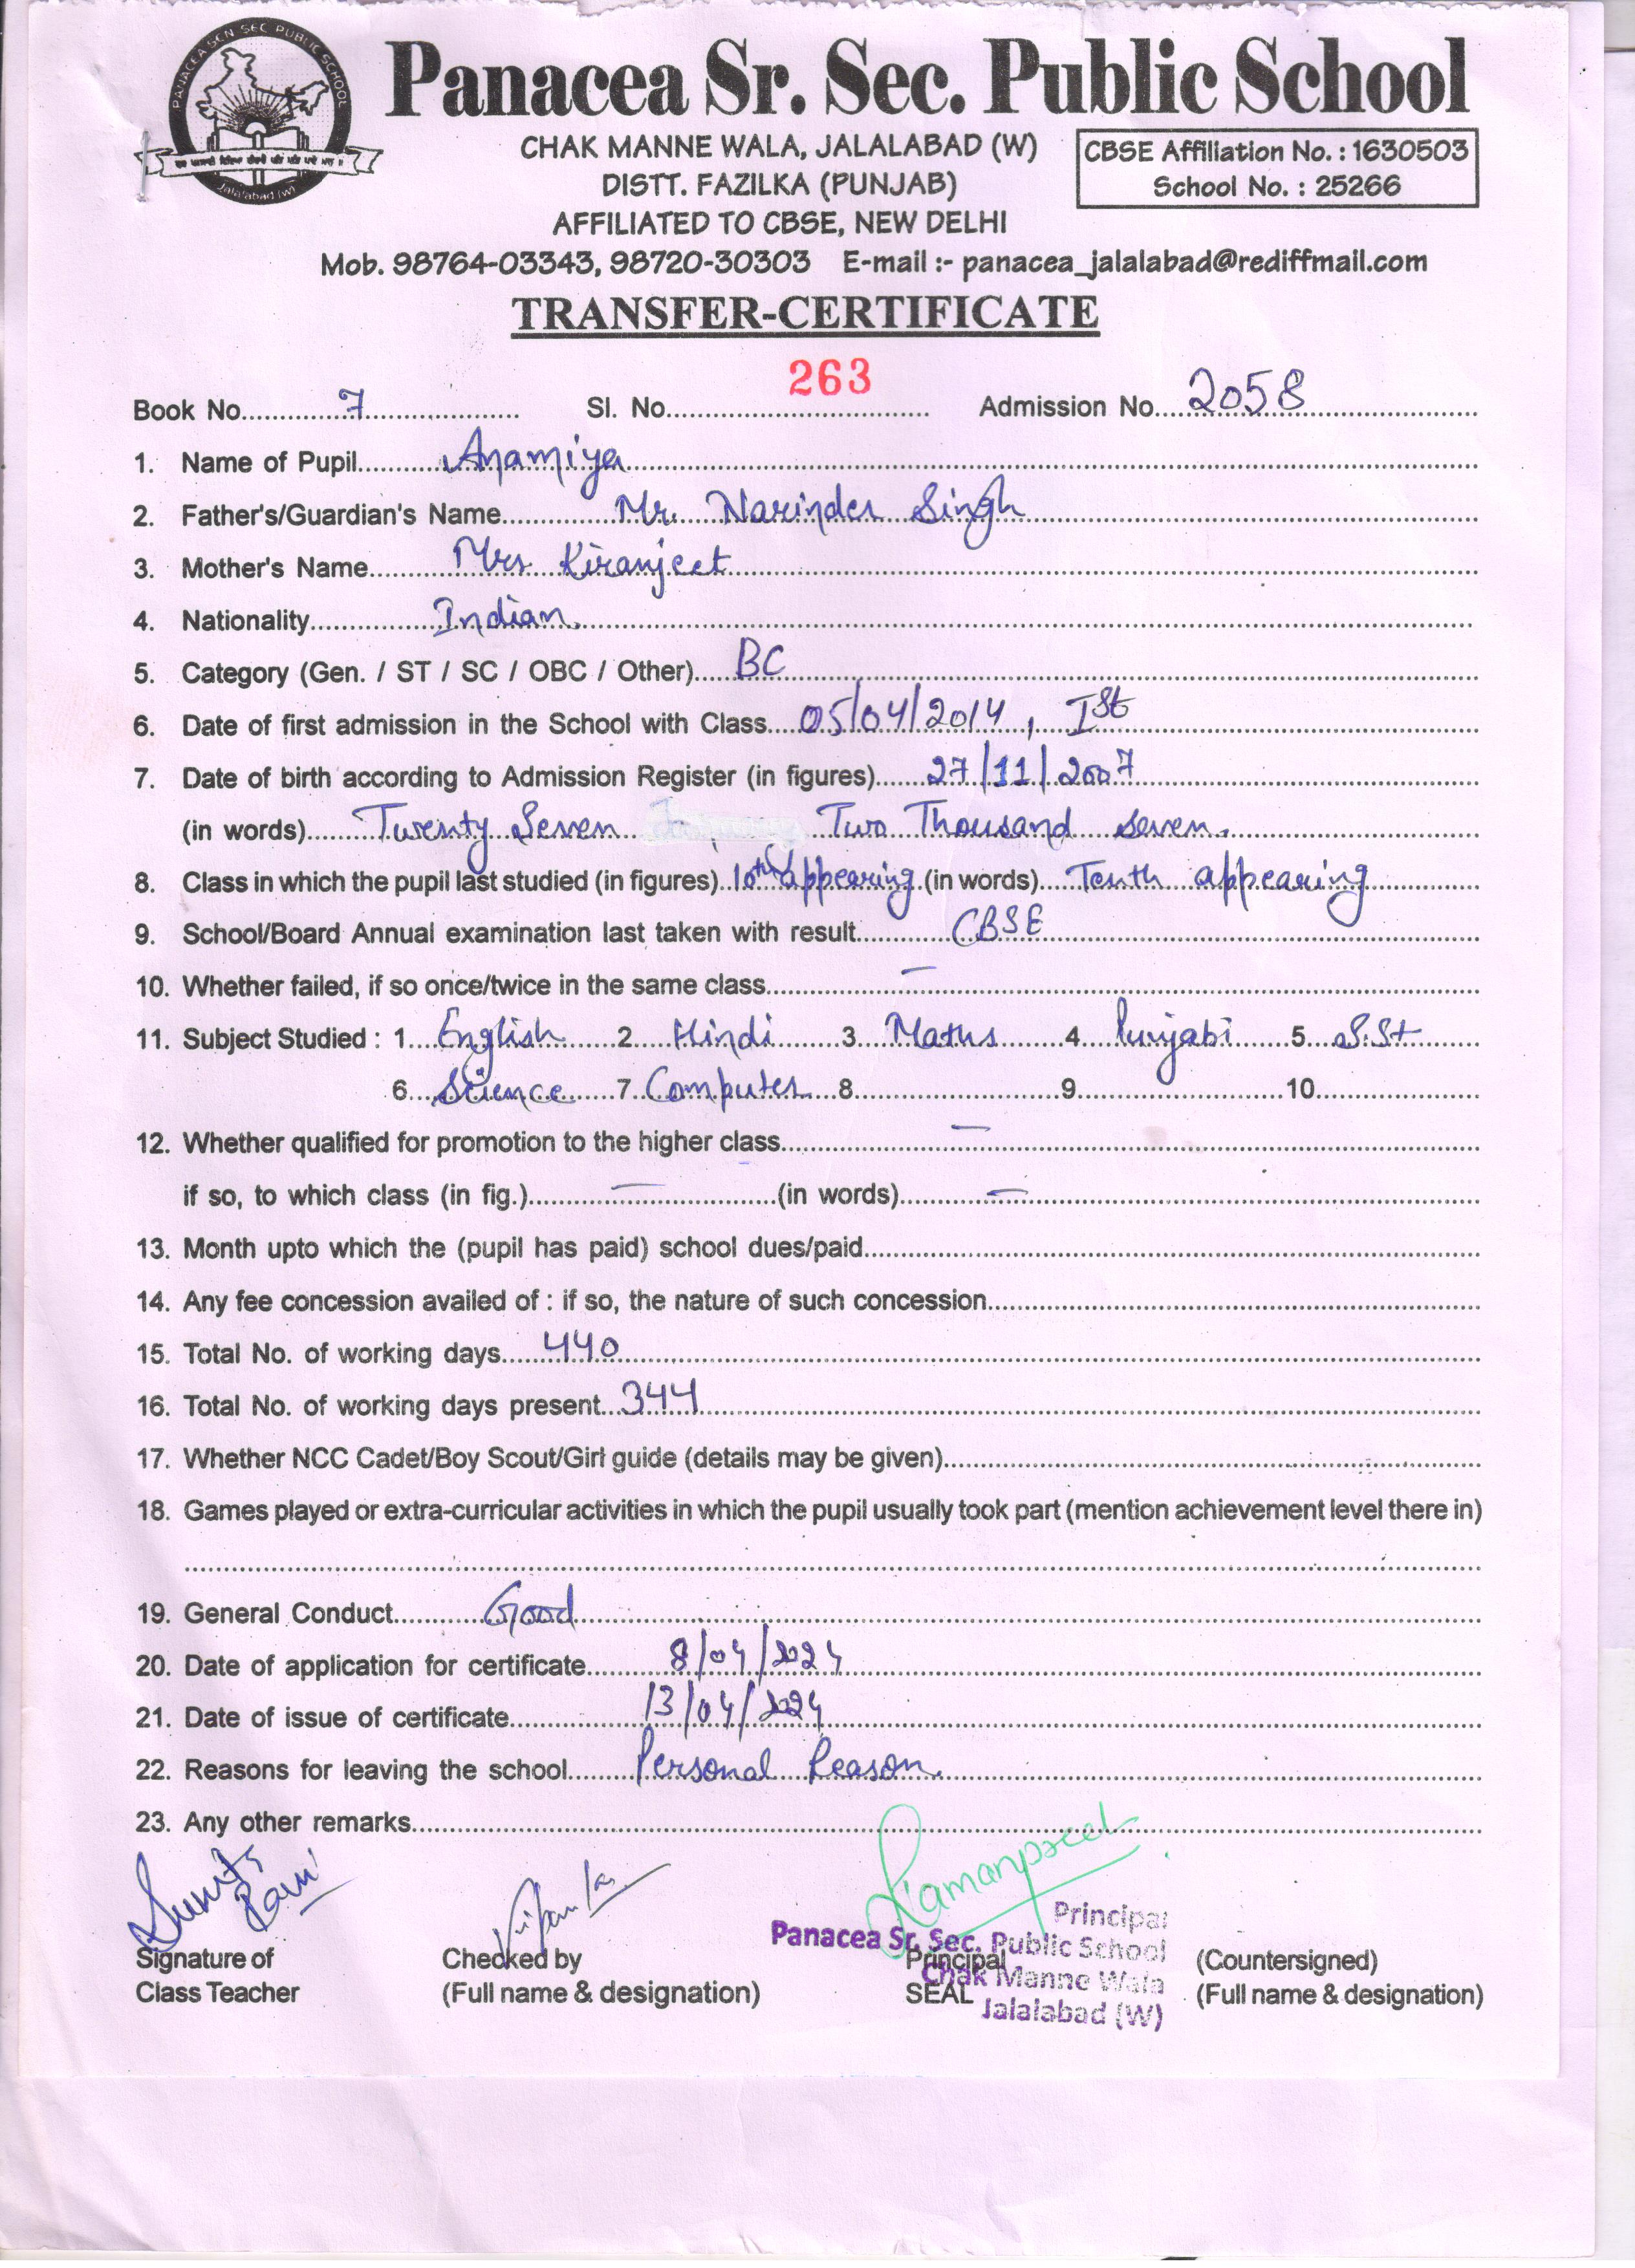 PANACEA SEN SEC PUBLIC SCHOOL
Jalalabad (W)
Panacea Sr. Sec. Public School
CHAK MANNE WALA, JALALABAD (W)
DISTT. FAZILKA (PUNJAB)
AFFILIATED TO CBSE, NEW DELHI
CBSE Affiliation No. : 1630503
School No. : 25266
Mob. 98764-03343, 98720-30303 E-mail :- panacea_jalalabad@rediffmail.com
TRANSFER-CERTIFICATE
Book No. 7 Sl. No. 263 Admission No. 2058
1. Name of Pupil Anamiya
2. Father's/Guardian's Name Mr. Narinder Singh
3. Mother's Name Mrs Kiranjeet
4. Nationality Indian.
5. Category (Gen. / ST / SC / OBC / Other) BC
6. Date of first admission in the School with Class 05/04/2014, Ist
7. Date of birth according to Admission Register (in figures) 27/11/2007
(in words) Twenty Seven Two Thousand seven.
8. Class in which the pupil last studied (in figures) 10th appearing (in words) Tenth appearing
9. School/Board Annual examination last taken with result CBSE
10. Whether failed, if so once/twice in the same class —
11. Subject Studied : 1 English 2 Hindi 3 Maths 4 Punjabi 5 S.St
6 Science 7 Computer 8 9 10
12. Whether qualified for promotion to the higher class —
if so, to which class (in fig.) — (in words) —
13. Month upto which the (pupil has paid) school dues/paid
14. Any fee concession availed of : if so, the nature of such concession
15. Total No. of working days 440
16. Total No. of working days present 344
17. Whether NCC Cadet/Boy Scout/Girl guide (details may be given)
18. Games played or extra-curricular activities in which the pupil usually took part (mention achievement level there in)
19. General Conduct Good
20. Date of application for certificate 8/04/2024
21. Date of issue of certificate 13/04/2024
22. Reasons for leaving the school Personal Reason.
23. Any other remarks
Sunita Rani
Ramanpreet
Principal
Panacea Sr. Sec. Public School
Chak Manne Wala
Jalalabad (W)
Signature of Checked by Principal (Countersigned)
Class Teacher (Full name & designation) SEAL (Full name & designation)